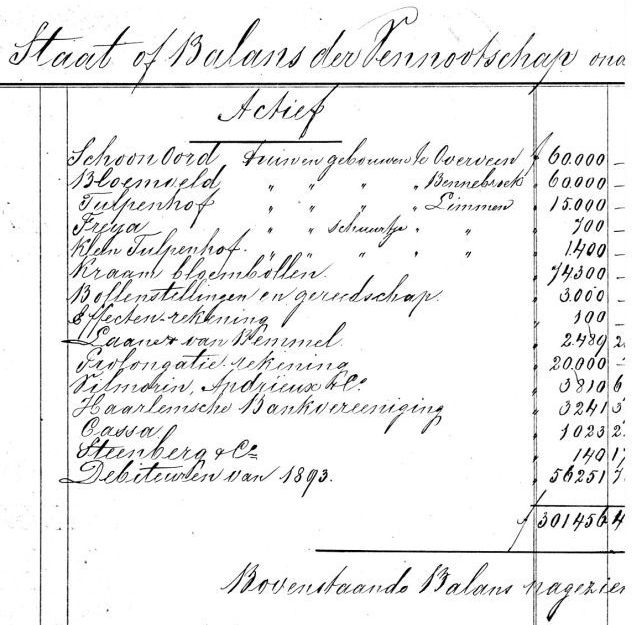 Staat of Balans der Vennootschap ond
Actief
Schoon Oord tuin en gebouwen te Overveen f 60.000 –
Bloemveld " " " " Bennebroek " 60.000 –
Tulpenhof " " " " Limmen " 15.000 –
Freya " " schuurtje " " " 700 –
Klein Tulpenhof. " " " " " " 1.400 –
Kraam bloembollen. " 74300 –
Bollenstellingen en gereedschap. " 3.000 –
Effecten-rekening " 100 –
van " 2489 2
Prolongatie rekening " 20.000 –
Vilmorin, Andrieux & Co " 3810 6
Haarlemsche Bankvereeniging " 3241 5
Cassa " 1023 2
Steenberg & Co " 140 17
Debiteuren van 1893. " 56251 7
f 301456 4
Bovenstaande Balans nagezien